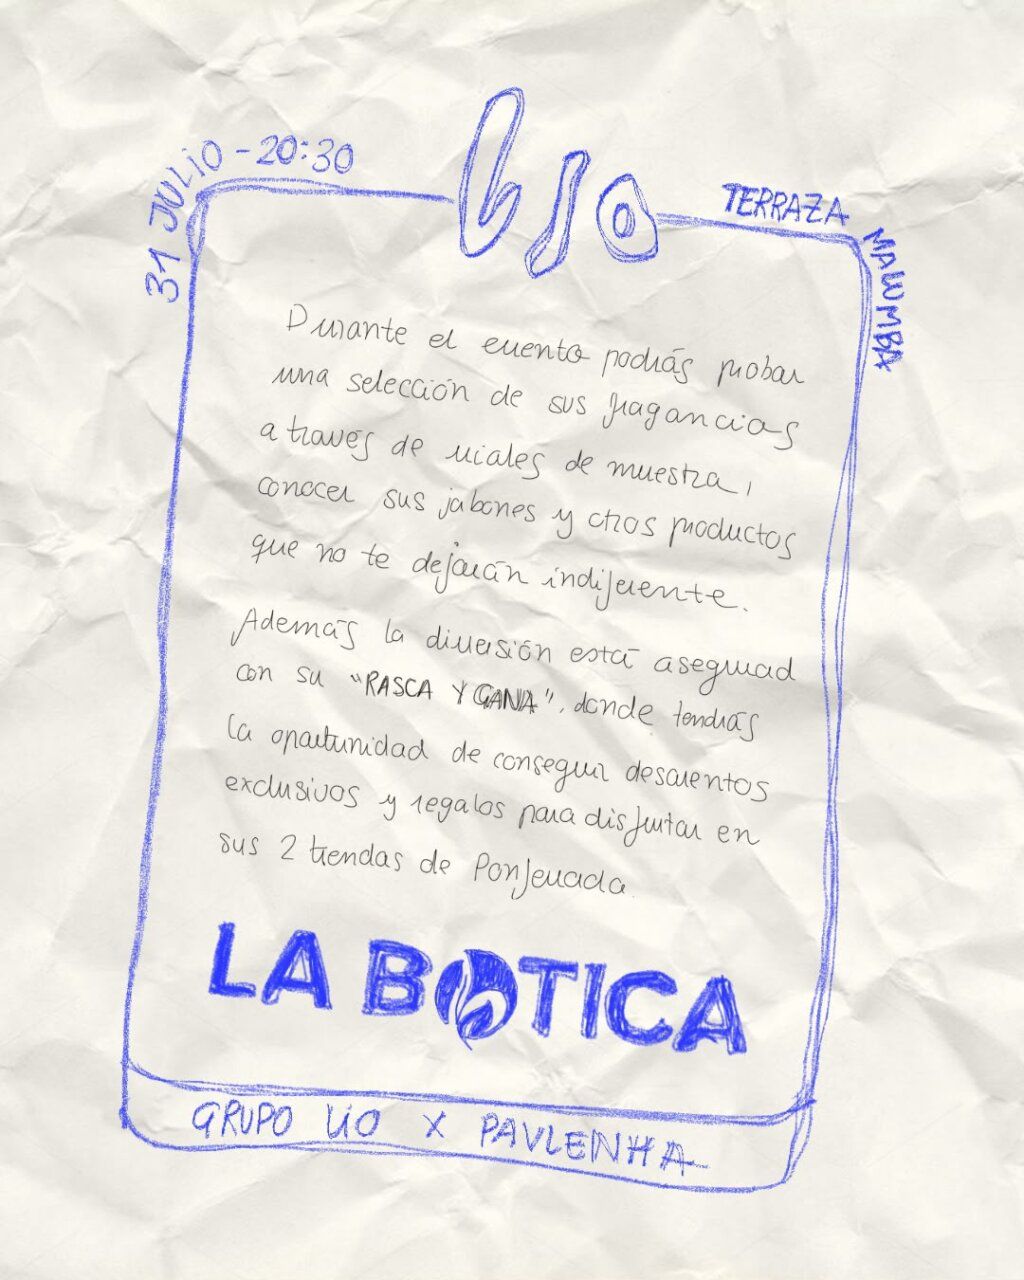 31 JULIO - 20:30
LIO
TERRAZA
MALUMBA
Durante el evento podrás probar
una selección de sus fragancias
a través de viales de muestra,
conocer sus jabones y otros productos
que no te dejarán indiferente.
Además la diversión está asegurad
con su "RASCA Y GANA", donde tendrás
la oportunidad de conseguir descuentos
exclusivos y regalos para disfrutar en
sus 2 tiendas de Ponferrada.
LA BOTICA
GRUPO LIO X PAVLENHA